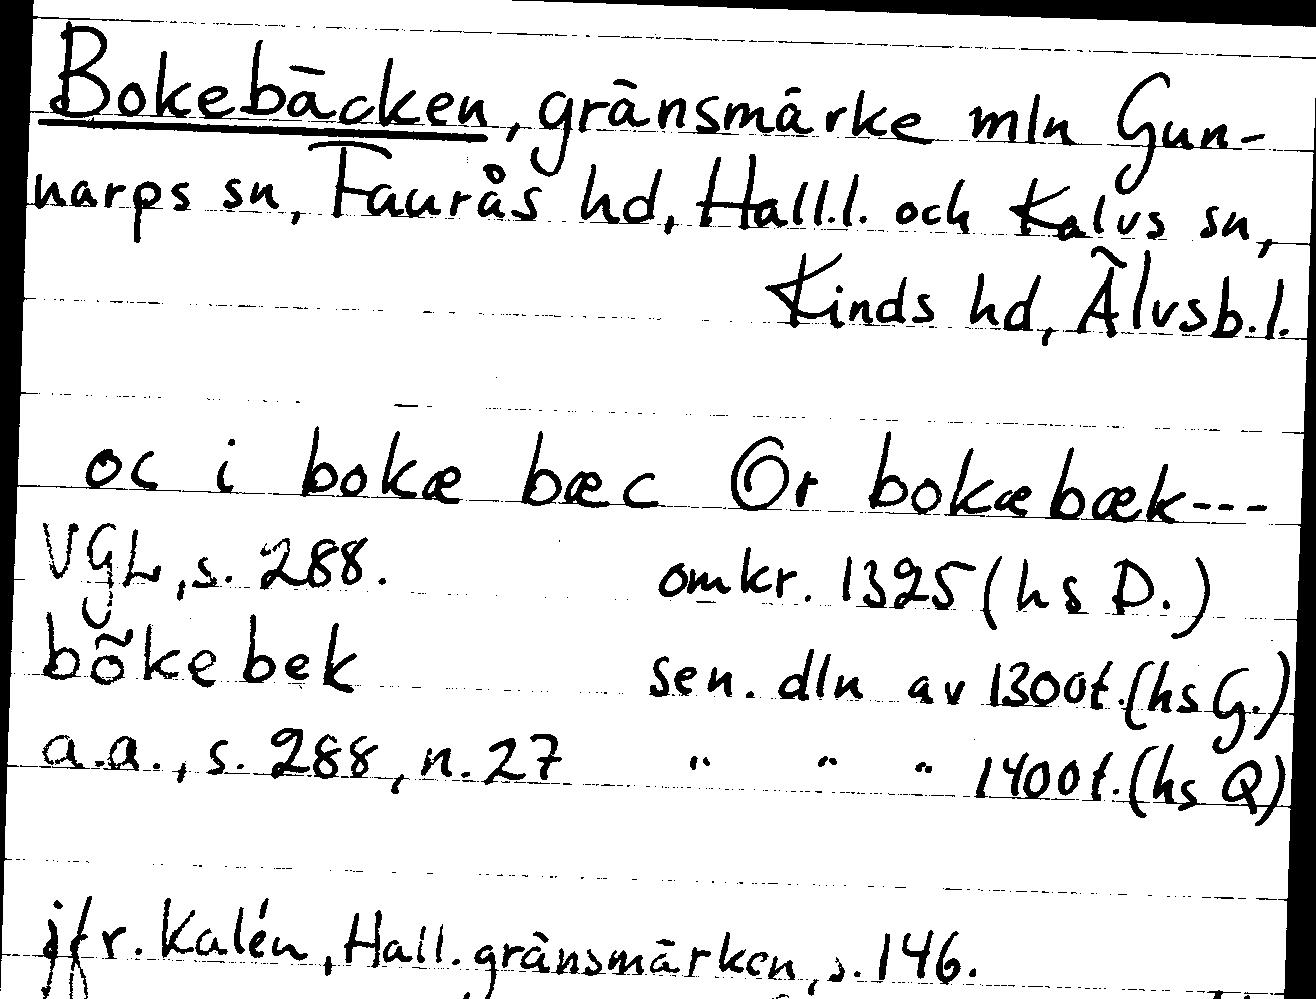 Bokebäcken, gränsmärke mln Gun-
narps sn, Faurås hd, Hall.l. och Kalvs sn,
Kinds hd, Älvsb.l.
oc i bokæ bæc Or bokæbæk---
VGL, s. 288. omkr. 1325 (hs D.)
bökebek sen. dln av 1300t. (hs G.)
a.a., s. 288, n. 27 " " " 1400t. (hs Q)
jfr. Kalén, Hall. gränsmärken, s. 146.